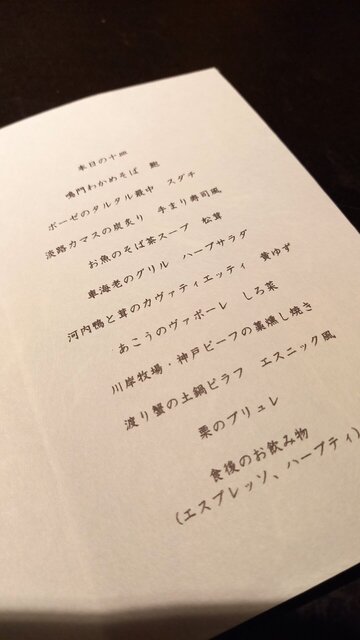 本日の十皿
鳴門わかめそば　鮑
ボーゼのタルタル最中　スダチ
淡路カマスの炭炙り　手まり寿司風
お魚のそば茶スープ　松茸
車海老のグリル　ハーブサラダ
河内鴨と茸のカヴァティエッティ　黄ゆず
あこうのヴァポーレ　しろ菜
川岸牧場・神戸ビーフの藁燻し焼き
渡り蟹の土鍋ピラフ　エスニック風
栗のブリュレ
食後のお飲み物
(エスプレッソ、ハーブティ)